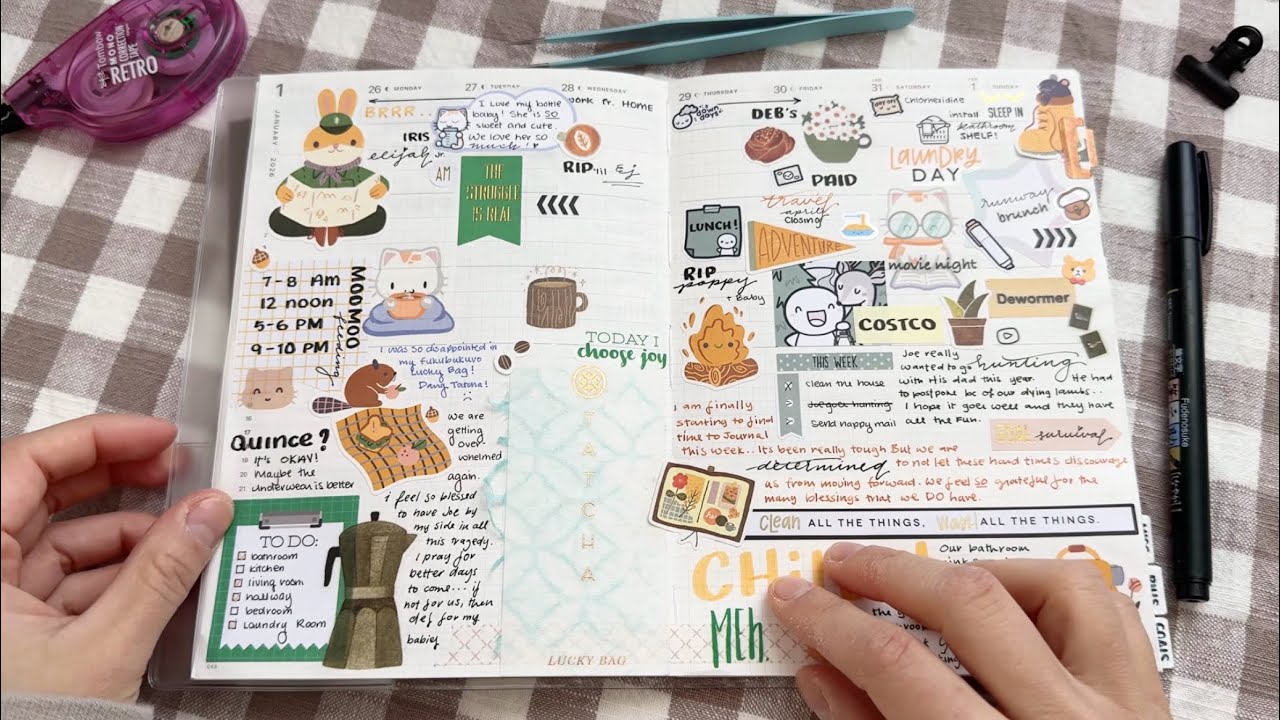 Tombow
MONO
CORRECTION
TAPE
RETRO
1
JANUARY 2026
26 MONDAY
27 TUESDAY
28 WEDNESDAY
BRRR..
IRIS
elijah Jr.
AM
I love my bottle
baby! She is SO
sweet and cute.
We love her so
much!
work fr. HOME
RIP 'till Ej
THE
STRUGGLE
IS REAL
7-8 AM
12 noon
5-6 PM
9-10 PM
MOOMOO
feeding
I was so disappointed in
my fukubukuro
Lucky Bag!
Dang Tatcha!
TODAY I
choose joy
QUINCE?
IT'S OKAY!
Maybe the
underwear is better
16
17
19
20
21
we are
getting
over
whelmed
again.
i feel so blessed
to have Joe by
my side in all
this tragedy.
I pray for
better days
to come... if
not for us, then
def for my
babiey
TO DO:
bathroom
kitchen
living room
hallway
bedroom
Laundry Room
TATCHA
LUCKY BAG
29 THURSDAY
30 FRIDAY
31 SATURDAY
1 SUNDAY
DEB'S
PAID
day off
Chlorhexidine
install
bathroom
SHELF!
SLEEP IN
LaUnDRY
DAY
LUNCH!
travel
april
closing
ADVENTURE
runway
brunch
movie night
RIP
poppy
+ Baby
COSTCO
Dewormer
THIS WEEK
clean the house
Joe goes hunting
Send happy mail
Joe really
wanted to go hunting
with His dad this year. He had
to postpone bc of our dying lambs..
I hope it goes well and they have
all the fun.
survival
I am finally
starting to find
time to Journal
this week.. Its been really tough But we are
determined to not let these hard times discourage
us from moving forward. We feel so grateful for the
many blessings that we DO have.
clean ALL THE THINGS, wash ALL THE THINGS.
CHi
Meh.
Our bathroom
Fudenosuke
GOALS